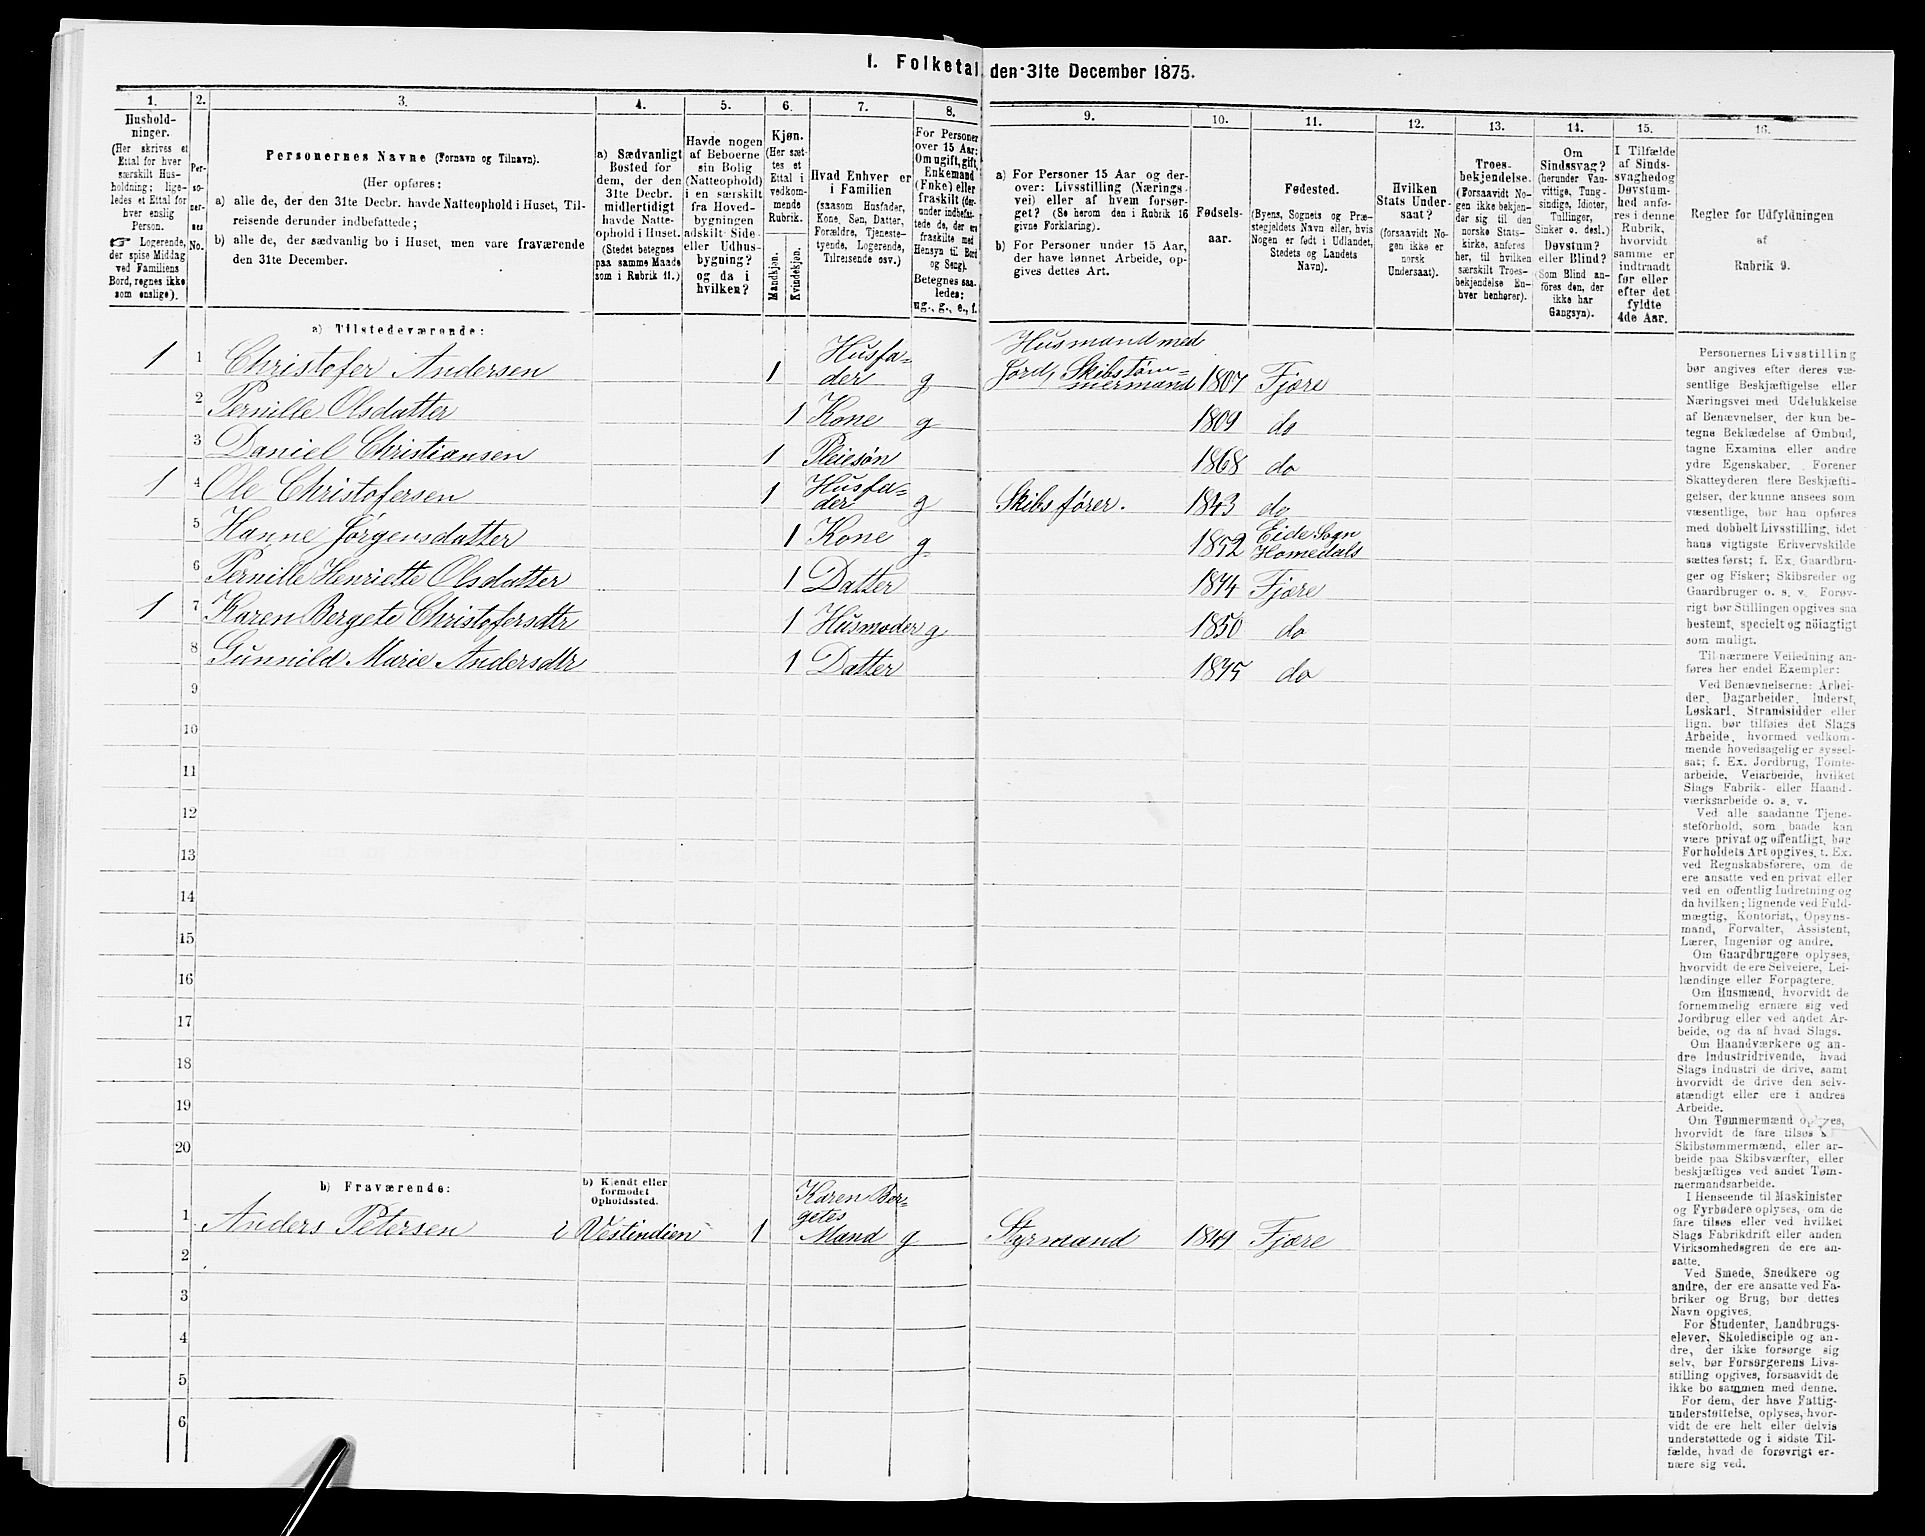 I. Folketal den 31te December 1875.
1. 2. 3. 4. 5. 6. 7. 8. 9. 10. 11. 12. 13. 14. 15. 16.
Hushold-
ninger.
(Her skrives et
Ettal for hver
særskilt Hus-
holdning; lige-
ledes et Ettal for
hver enslig
Person.
☞ Logerende,
der spise Middag
ved Familiens
Bord, regnes ikke
som enslige).
Per-
so-
ner-
nes
No.
Personernes Navne (Fornavn og Tilnavn).
(Her opføres:
a) alle de, der den 31te Decbr. havde Natteophold i Huset, Til-
reisende derunder indbefattede;
b) alle de, der sædvanlig bo i Huset, men vare fraværende
den 31te December.
a) Sædvanligt
Bosted for
dem, der den
31te Decbr.
midlertidigt
havde Natte-
ophold i Huset.
(Stedet betegnes
paa samme Maade
som i Rubrik 11.)
Havde nogen
af Beboerne
sin Bolig
(Natteophold)
i en særskilt
fra Hoved-
bygningen
adskilt Side-
eller Udhus-
bygning?
og da i
hvilken?
Kjøn.
(Her sæt-
tes et
Ettal i
vedkom-
mende
Rubrik.
Mandkjøn.
Kvindekjøn.
Hvad Enhver er
i Familien
(saasom Husfader,
Kone, Søn, Datter,
Forældre, Tjeneste-
tyende, Logerende,
Tilreisende osv.)
For Personer
over 15 Aar:
Om ugift, gift,
Enkemand
(Enke) eller
fraskilt (der-
under indbefat-
tede de, der ere
fraskilte med
Hensyn til Bord
og Seng).
Betegnes saa-
ledes:
ug., g., e., f.
a) For Personer 15 Aar og der-
over: Livsstilling (Nærings-
vei) eller af hvem forsør-
get? (Se herom den i Rubrik 16
givne Forklaring).
b) For Personer under 15 Aar,
der have lønnet Arbeide, op-
gives dettes Art.
Fødsels-
aar.
Fødested.
(Byens, Sognets og Præ-
stegjeldets Navn eller, hvis
Nogen er født i Udlandet,
Stedets og Landets
Navn).
Hvilken
Stats Under-
saat?
(forsaavidt No-
gen ikke er
norsk
Undersaat).
Troes-
bekjendelse.
(Forsaavidt No-
gen ikke bekjen-
der sig til den
norske Stats-
kirke, anføres
her, til hvilken
særskilt Troes-
bekjendelse En-
hver henhører).
Om
Sindssvag?
(herunder Van-
vittige, Tung-
sindige, Idioter,
Tullinger,
Sinker o. desl.)
Døvstum?
eller Blind?
(Som Blind an-
føres den, der
ikke har
Gangsyn).
I Tilfælde
af Sinds-
svaghed og
Døvstum-
hed anfø-
res i denne
Rubrik,
hvorvidt
samme er
indtraadt
før eller
efter det
fyldte
4de Aar.
Regler for Udfyldningen
af
Rubrik 9.
a) Tilstedeværende:
1 1 Christofer Andersen 1 Husfa-
der g Husmand med
Jord, Skibstøm-
mermand 1807 Fjære
2 Pernille Olsdatter 1 Kone g 1809 do
3 Daniel Christiansen 1 Pleiesøn 1868 do
1 4 Ole Christofersen 1 Husfa-
der g Skibsfører. 1843 do
5 Hanne Jørgensdatter 1 Kone g 1852 Eide Sogn
Homedals
6 Pernille Henriette Olsdatter 1 Datter 1874 Fjære
1 7 Karen Bergete Christofersdtr 1 Husmoder g 1850 do
8 Gunnild Marie Andersdtr 1 Datter 1875 do
9
10
11
12
13
14
15
16
17
18
19
20
b) Fraværende:
b) Kjendt eller
formodet
Opholdssted.
1 Anders Petersen i Vestindien 1 Karen Ber-
getes
Mand g Styrmand Fjære
2
3
4
5
6
Personernes Livsstilling
bør angives efter deres væ-
sentlige Beskjæftigelse eller
Næringsvei med Udelukkelse
af Benævnelser, der kun be-
tegne Beklædelse af Ombud,
tagne Examina eller andre
ydre Egenskaber. Forener
Skatteyderen flere Beskjæfti-
gelser, der kunne ansees som
væsentlige, bør han opføres
med dobbelt Livsstilling, idet
hans vigtigste Erhvervskilde
sættes først; f. Ex. Gaardbru-
ger og Fisker; Skibsreder og
Gaardbruger o. s. v. Forøv-
rigt bør Stillingen opgives saa
bestemt, specielt og nöiagtigt
som muligt.
Til nærmere Veiledning an-
føres her endel Exempler:
Ved Benævnelserne: Arbei-
der, Dagarbeider, Inderst,
Løskarl, Strandsidder eller
lign. bør tilføies det Slags
Arbeide, hvormed vedkom-
mende hovedsagelig er syssel-
sat; f. Ex. Jordbrug, Tomte-
arbeide, Veiarbeide, hvilket
Slags Fabrik- eller Haand-
værksarbeide o. s. v.
Ved alle saadanne Tjene-
steforhold, som baade kan
være privat og offentligt, bør
Forholdets Art opgives, f. Ex.
ved Regnskabsførere, om de
ere ansatte ved en privat eller
ved en offentlig Indretning og
da hvilken; lignende ved Fuld-
mægtig, Kontorist, Opsyns-
mand, Forvalter, Assistent,
Lærer, Ingeniør og andre.
Om Gaardbrugere oplyses,
hvorvidt de ere Selveiere, Lei-
lændinge eller Forpagtere.
Om Husmænd, hvorvidt de
fornemmelig ernære sig ved
Jordbrug eller ved andet Ar-
beide, og da af hvad Slags.
Om Haandværkere og an-
dre Industridrivende, hvad
Slags Industri de drive, samt
hvorvidt de drive den selv-
stændigt eller ere i andres
Arbeide.
Om Tømmermænd oplyses,
hvorvidt de fare tilsøs
Skibstømmermænd, eller ar-
beide paa Skibsværfter, eller
beskjæftiges ved andet Tøm-
mermandsarbeide.
I Henseende til Maskinister
og Fyrbødere oplyses, om de
fare tilsøs eller ved hvilket
Slags Fabrikdrift eller anden
Virksomhedsgren de ere an-
satte.
Ved Smede, Snedkere og
andre, der ere ansatte ved Fa-
briker og Brug, bør dettes
Navn opgives.
For Studenter, Landbrugs-
elever, Skoledisciple og an-
dre, der ikke forsørge sig
selv, bør Forsørgerens Livs-
stilling opgives, forsaavidt de
ikke bo sammen med denne.
For dem, der have Fattig-
understøttelse, oplyses, hvor-
vidt de ere helt eller delvis
understøttede og i sidste Til-
fælde, hvad de forøvrigt er-
nære sig ved.